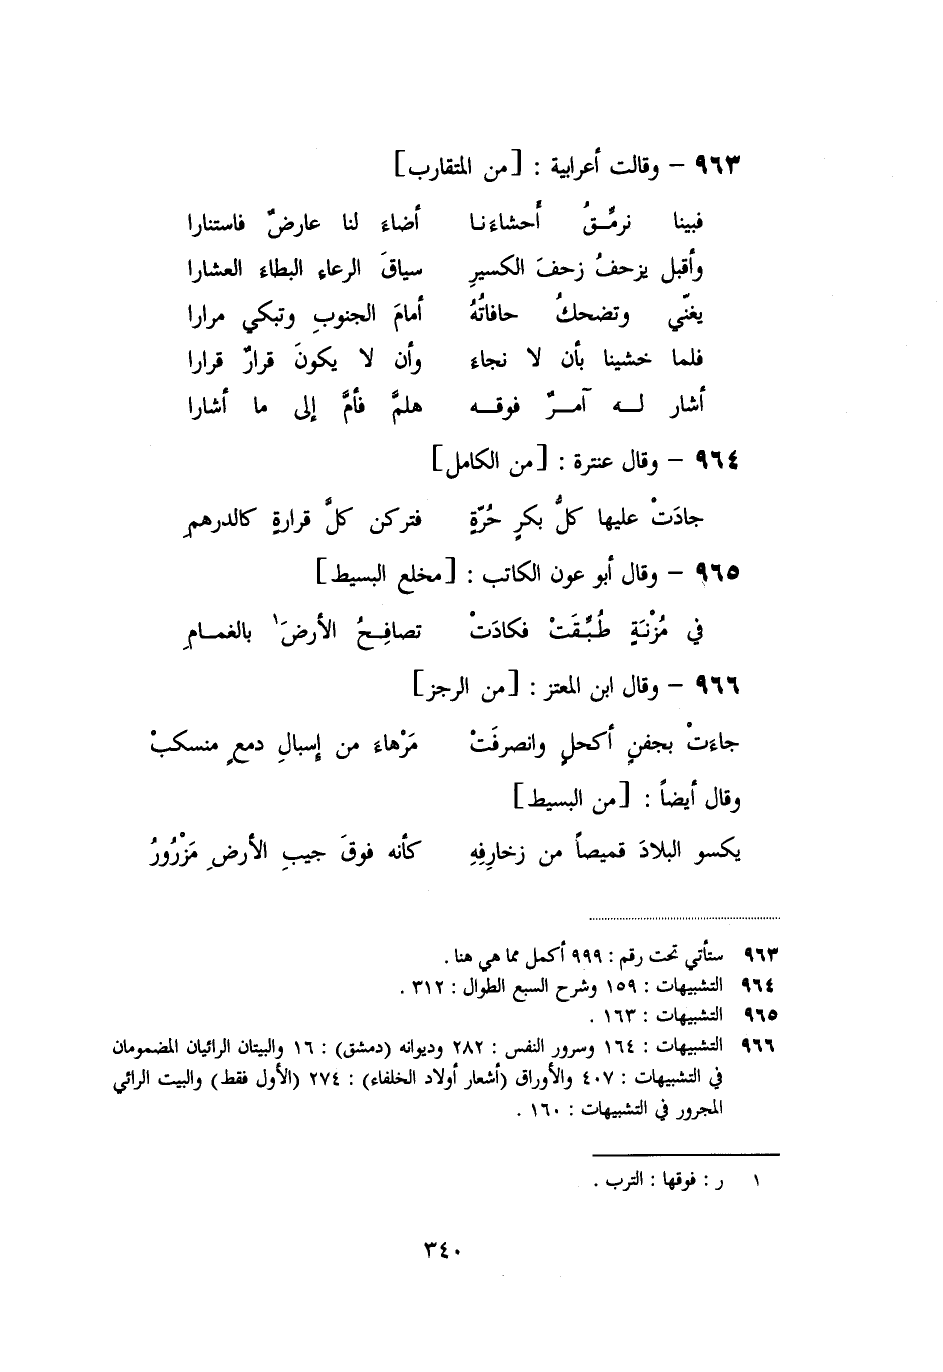 ٩٦٣ – وقالت أعرابية : [من المتقارب]
فبينا نرمِّـقُ أُحشاءَنـا أضاءَ لنا عارضٌ فاستنارا
وأقبل يزحفُ زحفَ الكسيرِ سياقَ الرعاءِ البطاءَ العشارا
يغنّي وتضحكُ حافاتُهُ أمامَ الجنوبِ وتبكي مرارا
فلما خشينا بأن لا نجاءَ وأن لا يكونَ قرارٌ قرارا
أشار لـه آمـرٌ فوقـه هلمَّ فأمَّ إلى ما أشارا
٩٦٤ – وقال عنترة : [من الكامل]
جادَتْ عليها كلُّ بكرٍ حُرّةٍ فتركن كلَّ قرارةٍ كالدرهمِ
٩٦٥ – وقال أبو عون الكاتب : [مخلع البسيط]
في مُزْنَةٍ طُبِّقَتْ فكادَتْ تصافِحُ الأرضَ١ بالغمامِ
٩٦٦ – وقال ابن المعتز : [من الرجز]
جاءَتْ بجفنٍ أكحلٍ وانصرفَتْ مَرْهاءَ من إسبالِ دمعٍ منسكبْ
وقال أيضاً : [من البسيط]
يكسو البلادَ قميصاً من زخارِفِهِ كأنه فوقَ جيبِ الأرضِ مَزْرُورُ
٩٦٣ ستأتي تحت رقم : ٩٩٩ أكمل مما هي هنا .
٩٦٤ التشبيهات : ١٥٩ وشرح السبع الطوال : ٣١٢ .
٩٦٥ التشبيهات : ١٦٣ .
٩٦٦ التشبيهات : ١٦٤ وسرور النفس : ٢٨٢ وديوانه (دمشق) : ١٦ والبيتان الرائيان المضمومان
في التشبيهات : ٤٠٧ والأوراق (أشعار أولاد الخلفاء) : ٢٧٤ (الأول فقط) والبيت الرائي
المجرور في التشبيهات : ١٦٠ .
١ ر : فوقها : الترب .
٣٤٠